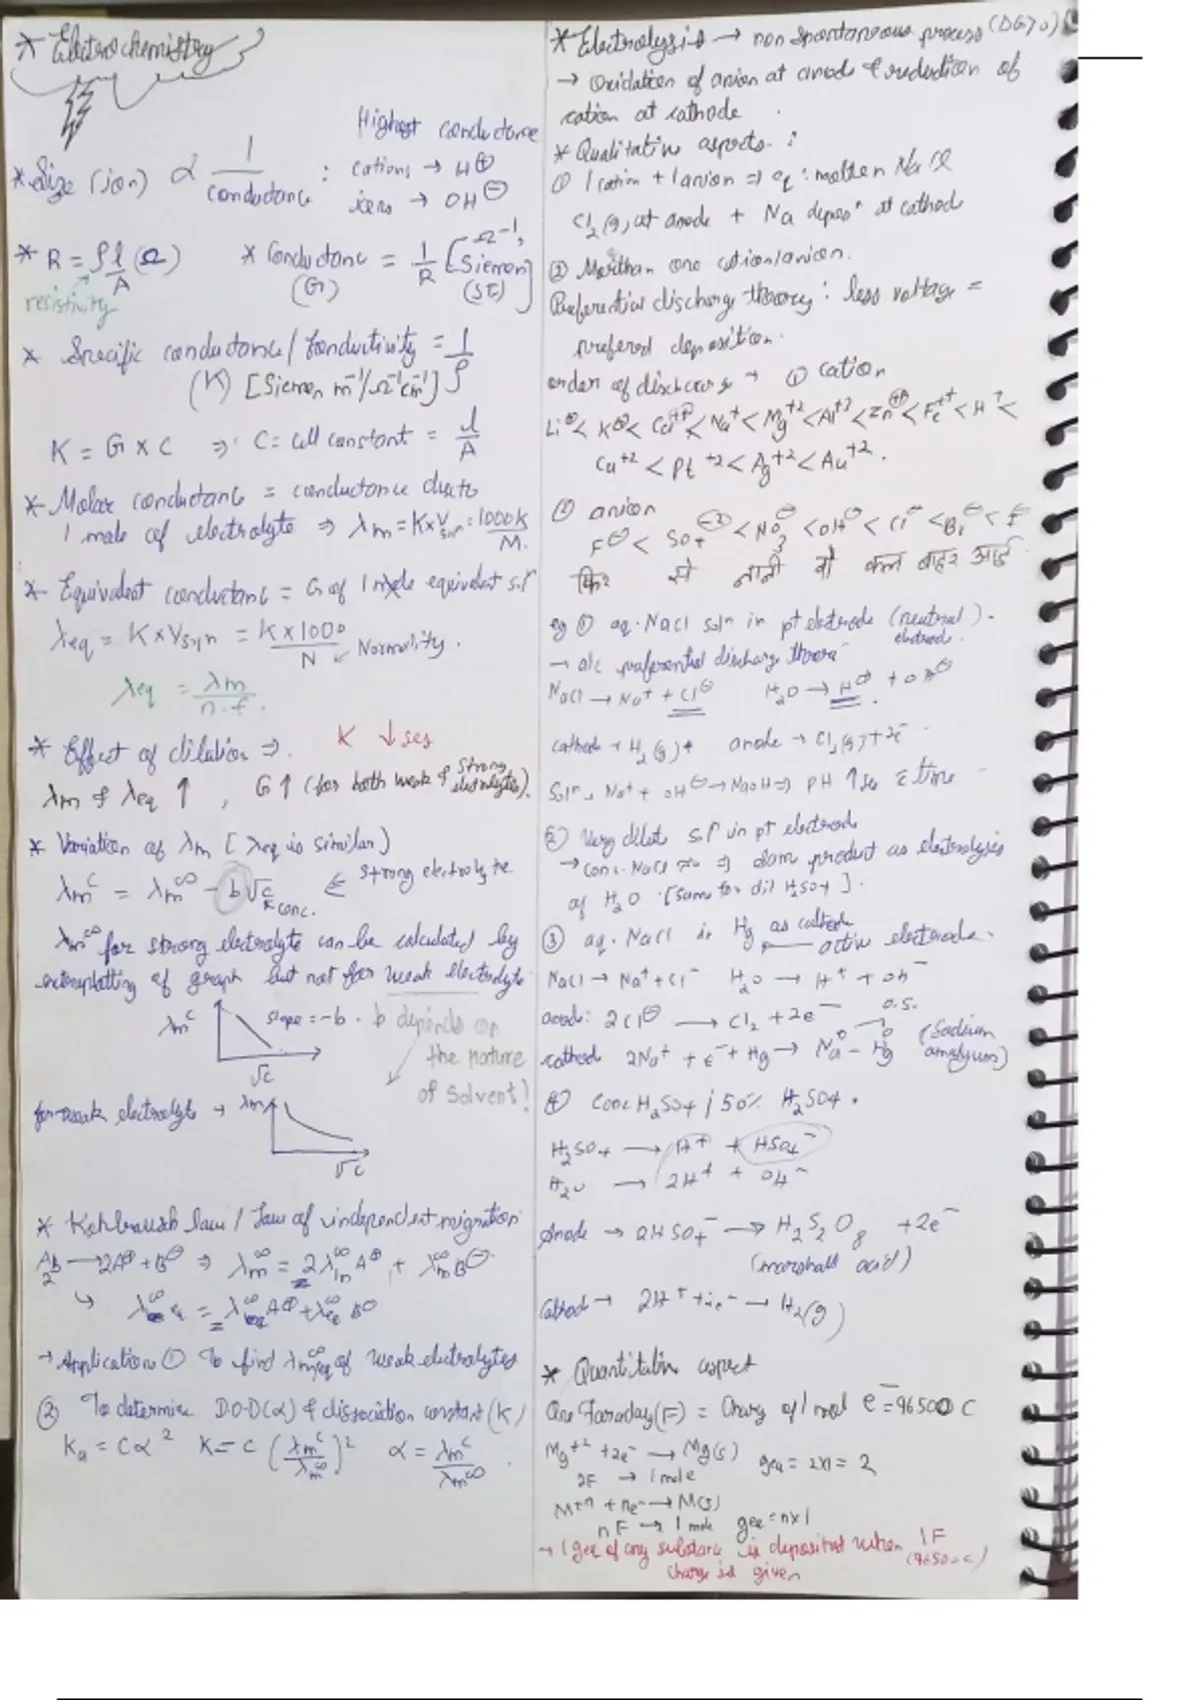 * Electrochemistry
Highest conductance
* Size (ion) ∝ 1/conductance : cations → H⊕
ions → OH⊖
* R = ρl/A (Ω) * Conductance = 1/R [Ω⁻¹, Siemen
resistivity (G) (SI)]
* Specific conductance/ Conductivity = 1/ρ
(K) [Siemen m⁻¹/Ω⁻¹cm⁻¹]
K = G × C ⇒ C = cell constant = l/A
* Molar conductance = conductance due to
1 mole of electrolyte ⇒ λm = K×V soln = 1000K/M.
* Equivalent conductance = G of 1 mole equivalent soln
λeq = K×Vsoln = K×1000/N ← Normality.
λeq = λm/n.f.
* Effect of dilution ⇒. K ↓ses
λm & λeq ↑ , G ↑ (for both weak & strong electrolytes).
* Variation of λm [λeq is similar)
λm^c = λm^∞ - b√c ← conc. ∈ strong electrolyte
λm^∞ for strong electrolyte can be calculated by
of graph but not for weak electrolyte
λm^c slope = -b . b depends on
the nature
√c of solvent!
for weak electrolyte → λm
√c
* Kohlraush law / law of independent migration
A₂B → 2A⊕ + B⊖ ⇒ λm^∞ = 2λm^∞ A⊕ + λm^∞ B⊖
↳ λ^∞eq = λ^∞eq A⊕ + λ^∞eq B⊖
→ Application ① To find λ^∞m/eq of weak electrolytes
② To determine D.O.D (α) & dissociation constant (K)
Ka = Cα² K = C (λm^c/λm^∞)² α = λm^c/λm^∞ .
* Electrolysis → non spontaneous process (ΔG>0)
→ Oxidation of anion at anode & reduction of
cation at cathode .
* Qualitative aspects :
① 1 cation + 1 anion ⇒ eg : molten NaCl
Cl₂(g) at anode + Na at cathode
② More than one cation/anion.
Preferential discharge theory : less voltage =
prefered deposition.
order of discharge → ① cation
Li⊕ < K⊕ < Ca⁺² < Na⁺ < Mg⁺² < Al⁺³ < Zn⁺² < Fe⁺⁺ < H⁺ <
Cu⁺² < Pt⁺² < Ag⁺² < Au⁺² .
② anion
F⊖ < SO₄⁻² < NO₃⊖ < OH⊖ < Cl⊖ < Br⊖ < I⊖
फिर से नानी वो कल बाहर आई
eg ① aq. NaCl soln in pt electrode (neutral electrode) .
→ a/c preferential discharge
NaCl → Na⁺ + Cl⊖ H₂O → H⊕ + OH⊖
cathode → H₂(g)↑ anode → Cl₂(g) + 2e⁻
Soln → Na⁺ + OH⊖ → NaOH ⇒ PH ↑se c̄ time
② Very dilute sol in pt electrode
→ conc. NaCl ≈ 0 ⇒ product as electrolysis
of H₂O . [same for dil H₂SO₄].
③ aq. NaCl in Hg as cathode
← active electrode.
NaCl → Na⁺ + Cl⁻ H₂O → H⁺ + OH⁻
anode: 2Cl⊖ → Cl₂ + 2e⁻ O.S.
cathode 2Na⁺ + e⁻ + Hg → Na⁰ - Hg⁰ (Sodium
④ Conc H₂SO₄ ; 50% H₂SO₄ .
H₂SO₄ → H⁺ + HSO₄⁻
H₂O → 2H⁺ + OH⁻
Anode → 2HSO₄⁻ → H₂S₂O₈ + 2e⁻
(marshall acid)
Cathode → 2H⁺ + 2e⁻ → H₂(g)
* Quantitative aspect
One Faraday (F) = Charg of 1 mol e⁻ = 96500 C
Mg⁺² + 2e⁻ → Mg(s) gee = 2×1 = 2
2F → 1 mole
M⁺ⁿ + ne⁻ → M(s)
nF → 1 mole gee = n×1
→ 1 gee of any substance is deposited when 1F
charge is given (96500 C)